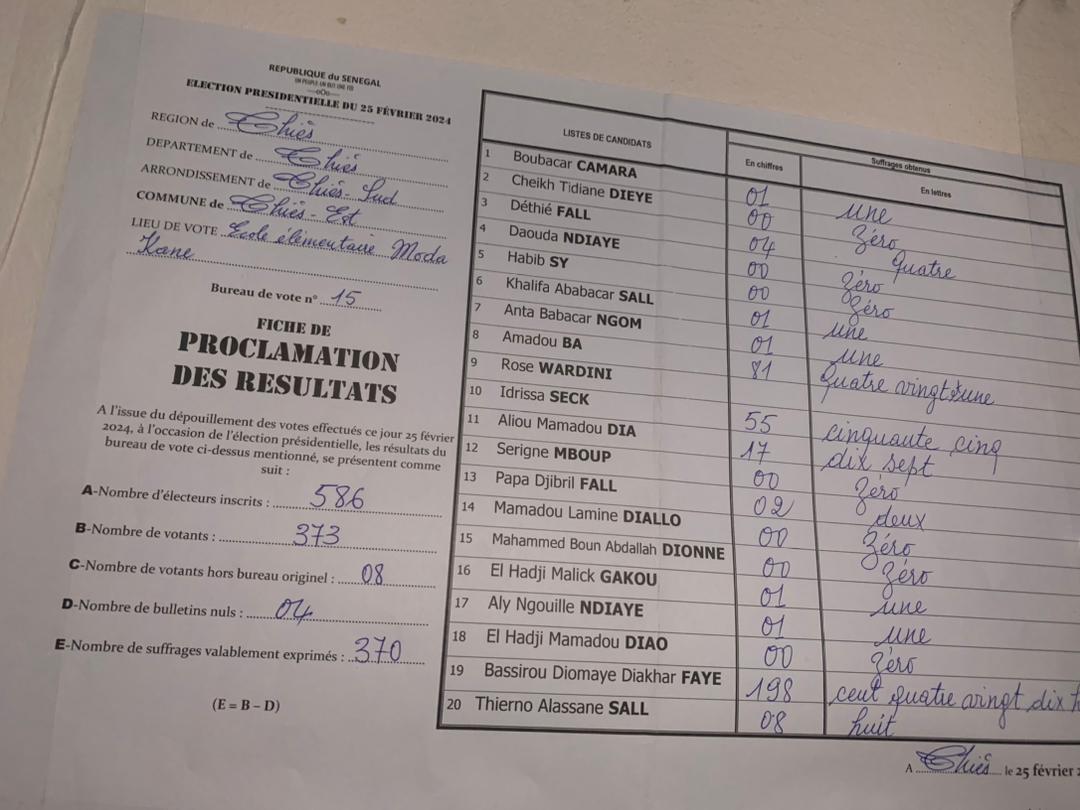 REPUBLIQUE du SENEGAL
UN PEUPLE-UN BUT-UNE FOI
---oOo---
ELECTION PRESIDENTIELLE DU 25 FÉVRIER 2024
REGION de Thiès
DEPARTEMENT de Thiès
ARRONDISSEMENT de Thiès-Sud
COMMUNE de Thiès-Est
LIEU DE VOTE Ecole élémentaire Moda
Kane
Bureau de vote n° 15
FICHE DE
PROCLAMATION
DES RESULTATS
A l'issue du dépouillement des votes effectués ce jour 25 février
2024, à l'occasion de l'élection présidentielle, les résultats du
bureau de vote ci-dessus mentionné, se présentent comme
suit :
A-Nombre d'électeurs inscrits : 586
B-Nombre de votants : 373
C-Nombre de votants hors bureau originel : 08
D-Nombre de bulletins nuls : 04
E-Nombre de suffrages valablement exprimés : 370
(E = B – D)
LISTES DE CANDIDATS
Suffrages obtenus
En chiffres En lettres
1 Boubacar CAMARA 01 une
2 Cheikh Tidiane DIEYE 00 Zéro
3 Déthié FALL 04 quatre
4 Daouda NDIAYE 00 Zéro
5 Habib SY 00 Zéro
6 Khalifa Ababacar SALL 01 une
7 Anta Babacar NGOM 01 une
8 Amadou BA 81 quatre vingt une
9 Rose WARDINI
10 Idrissa SECK 55 cinquante cinq
11 Aliou Mamadou DIA 17 dix sept
12 Serigne MBOUP 00 Zéro
13 Papa Djibril FALL 02 deux
14 Mamadou Lamine DIALLO 00 Zéro
15 Mahammed Boun Abdallah DIONNE 00 Zéro
16 El Hadji Malick GAKOU 01 une
17 Aly Ngouille NDIAYE 01 une
18 El Hadji Mamadou DIAO 00 Zéro
19 Bassirou Diomaye Diakhar FAYE 198 cent quatre vingt dix h
20 Thierno Alassane SALL 08 huit
A Thiès le 25 février 2